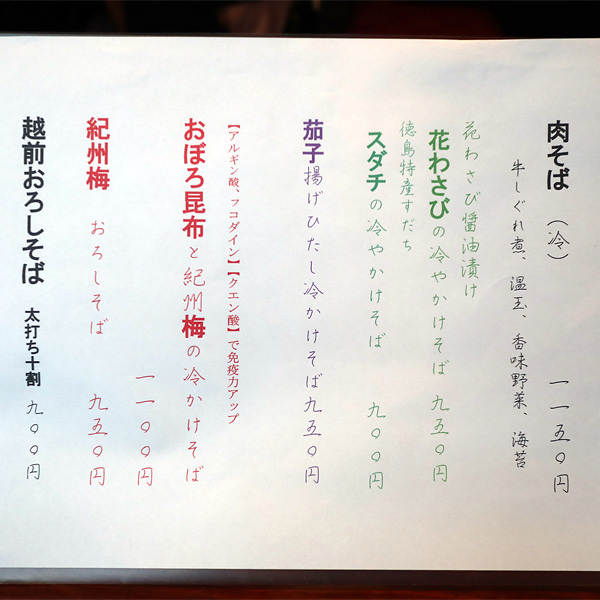 肉そば（冷）一一五〇円
牛しぐれ煮、温玉、香味野菜、海苔
花わさび醤油漬け
花わさびの冷やかけそば 九五〇円
徳島特産すだち
スダチの冷やかけそば 九〇〇円
茄子揚げひたし冷かけそば九五〇円
【アルギン酸、フコダイン】【クエン酸】で免疫力アップ
おぼろ昆布と紀州梅の冷かけそば
一一〇〇円
紀州梅 おろしそば 九五〇円
越前おろしそば 太打ち十割 九〇〇円